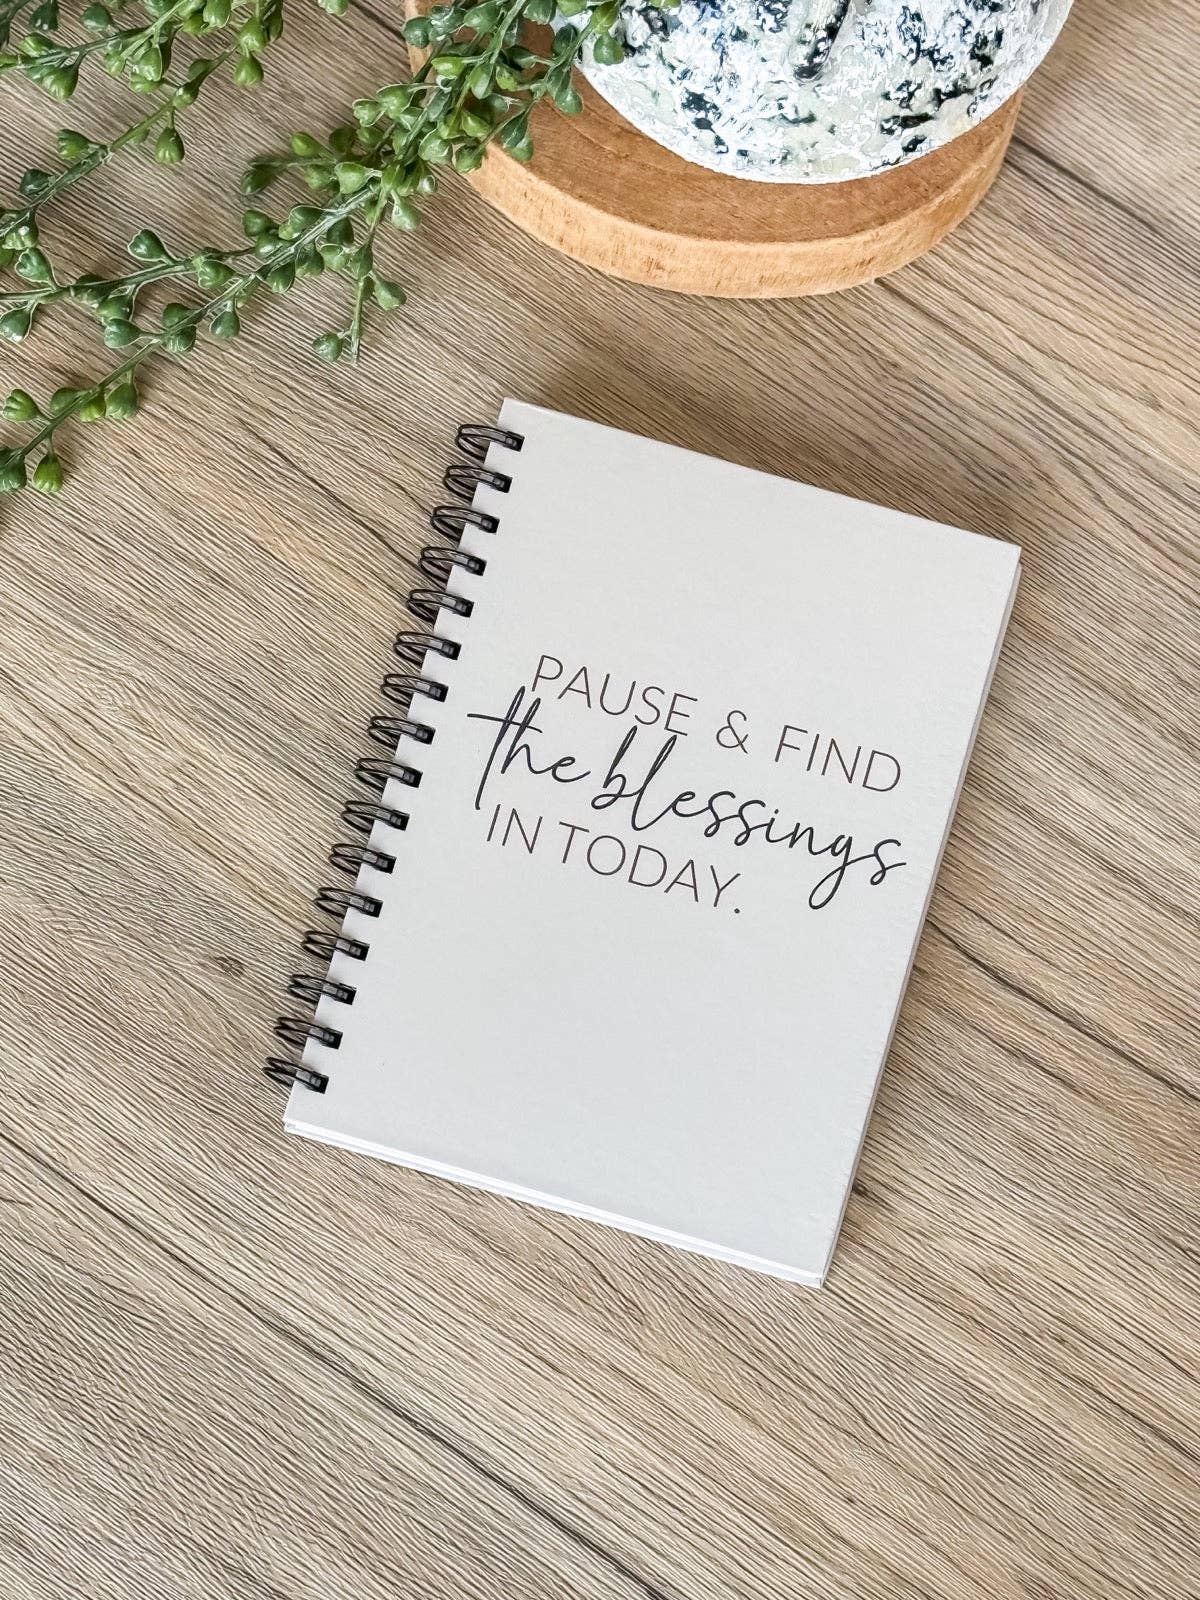 PAUSE & FIND
the blessings
IN TODAY.